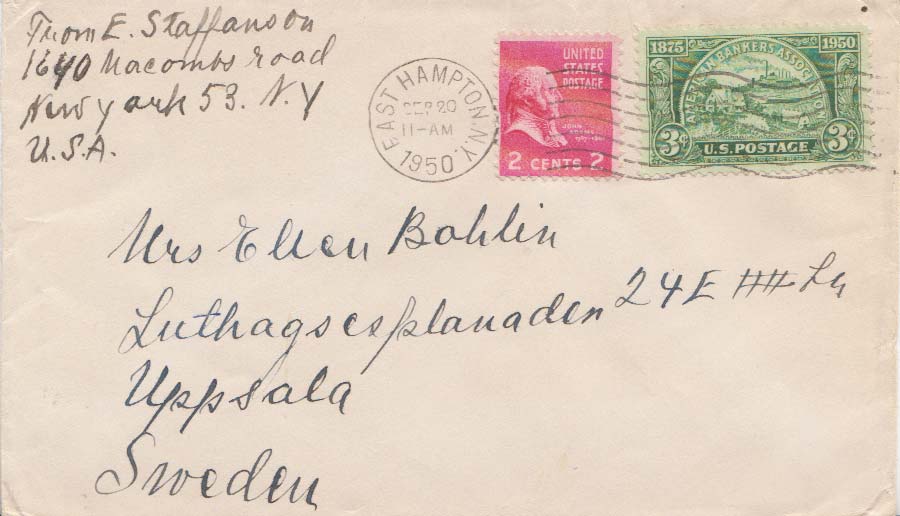 From E. Staffanson
1640 Macombs Road
New York 53. N.Y
U.S.A.
EAST HAMPTON, N.Y.
SEP 20
11-AM
1950
UNITED
STATES
POSTAGE
JOHN
ADAMS
2 CENTS 2
1875 1950
AMERICAN BANKERS ASSOCIATION
3¢ 3¢
U.S. POSTAGE
Mrs Ellen Bohlin
Luthagsesplanaden 24E
Uppsala
Sweden